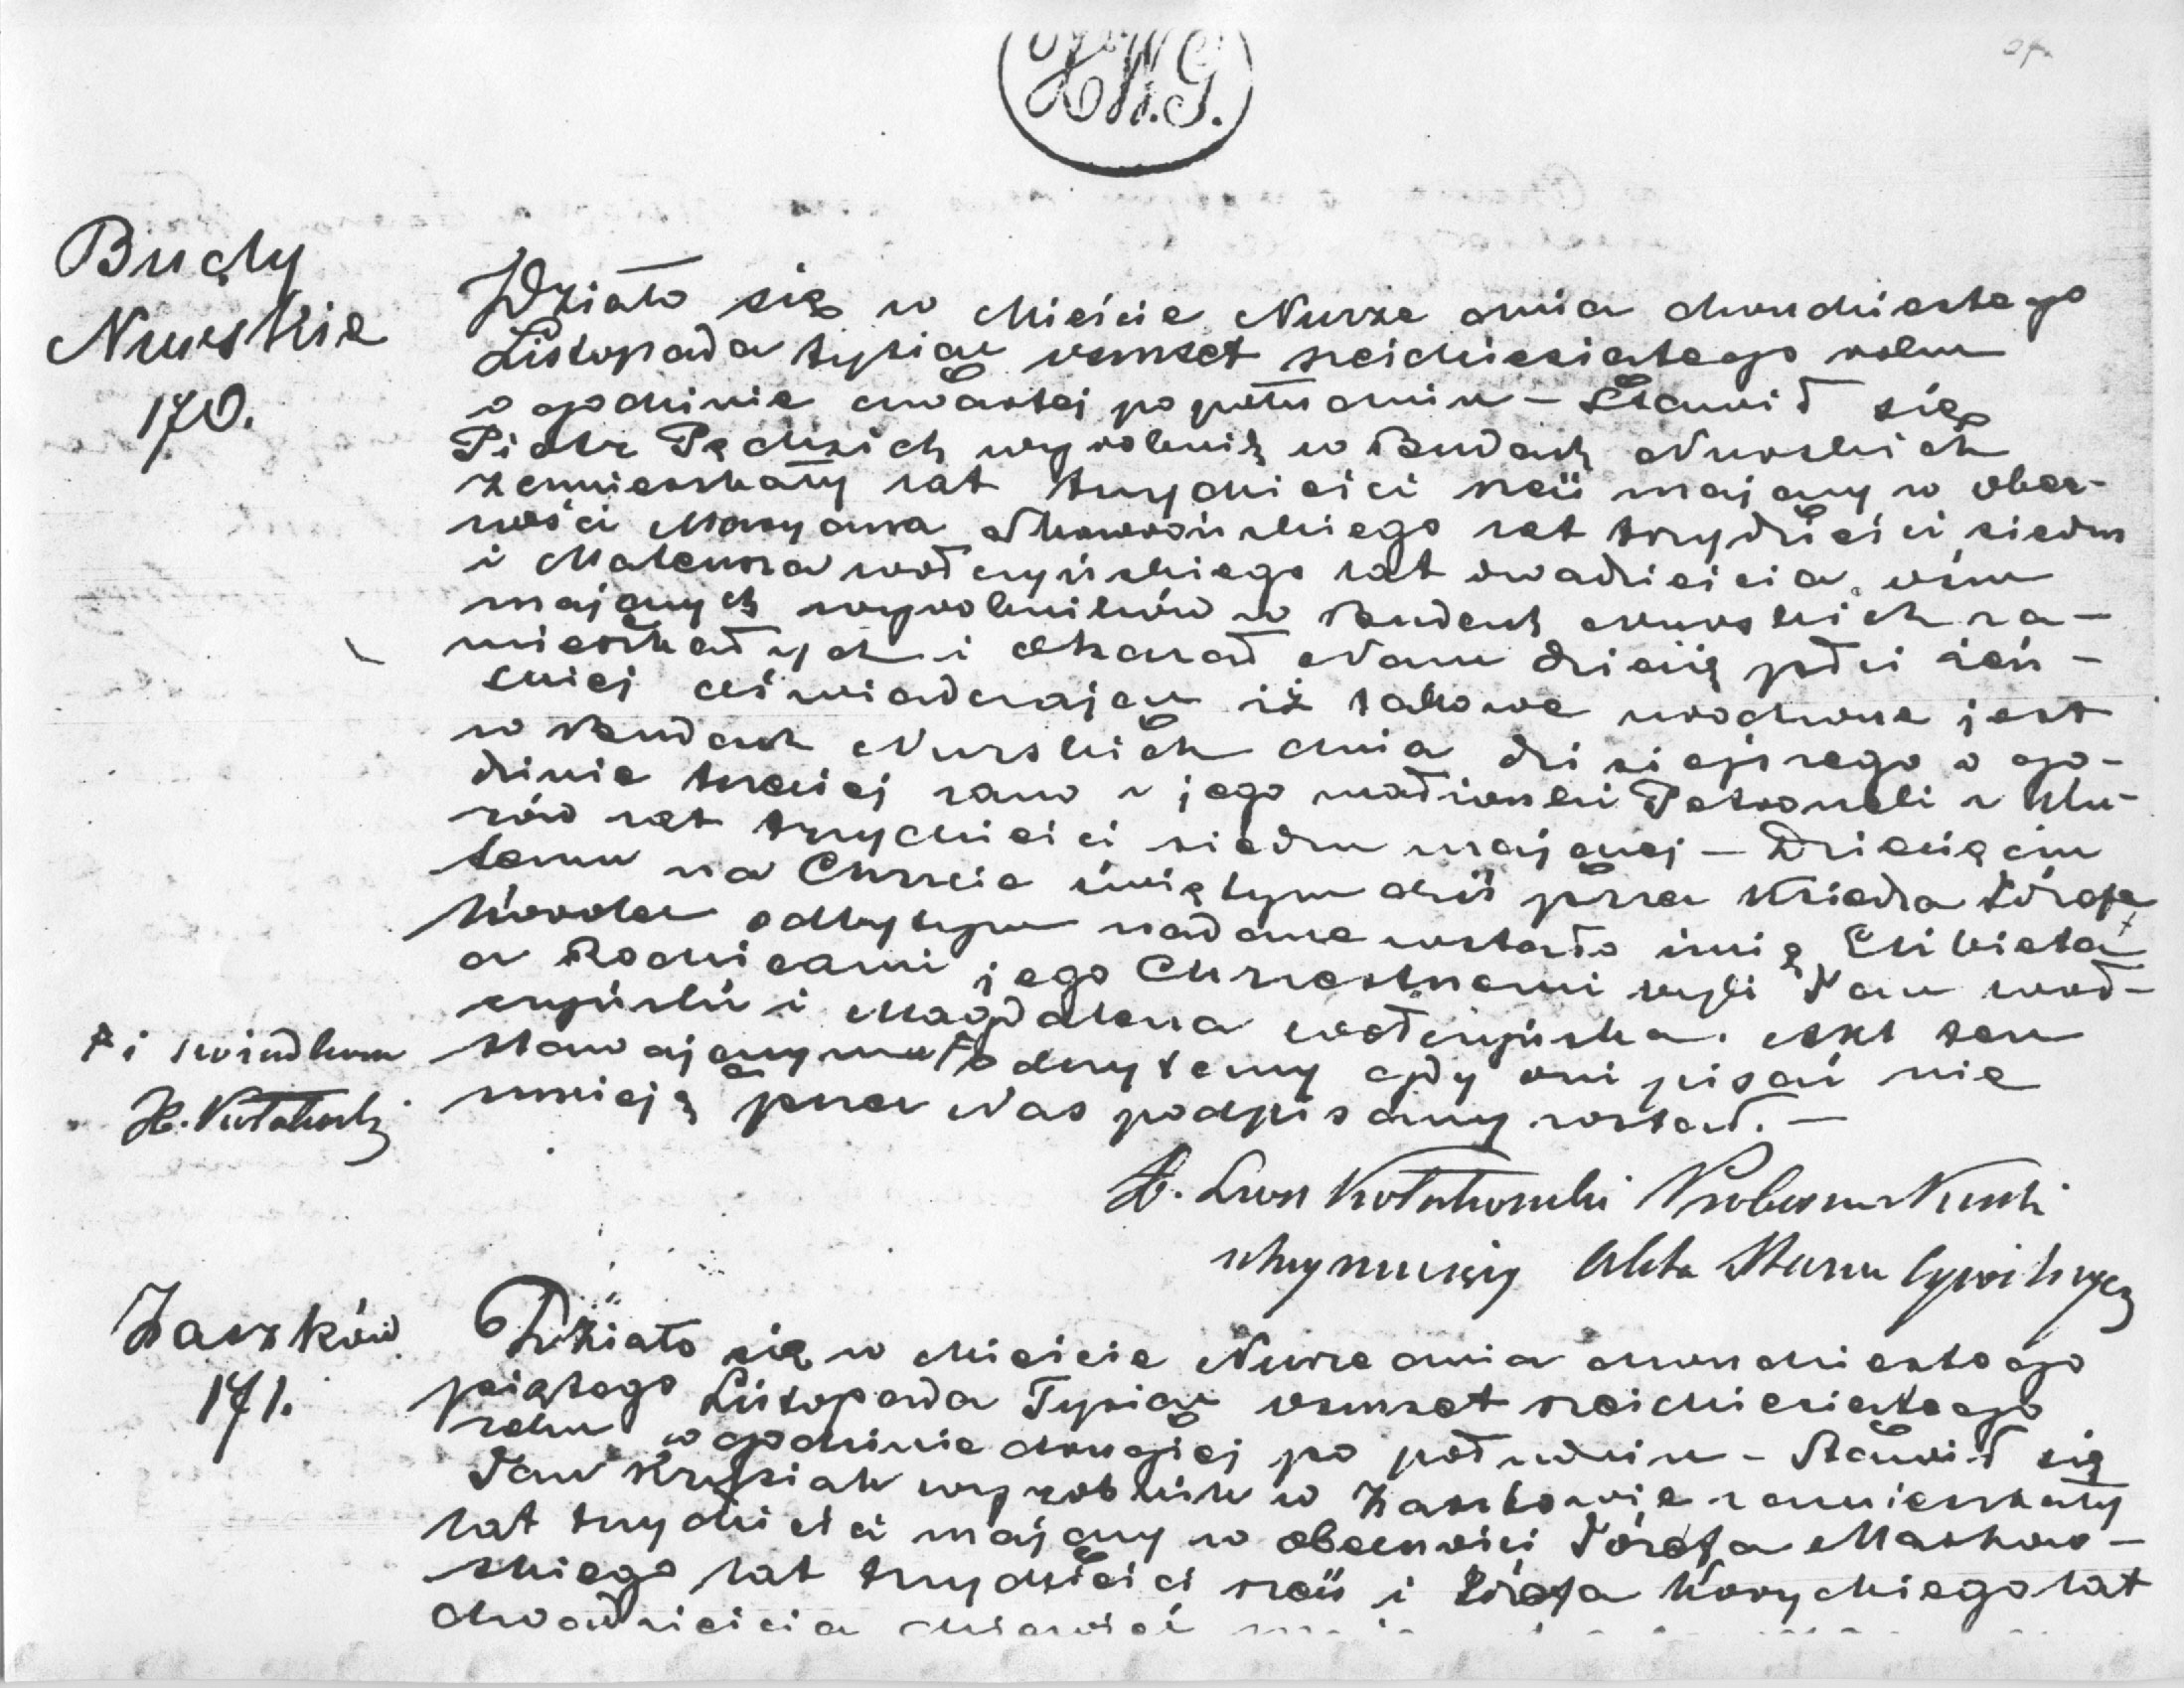 Z.W.G.
Budy
Nurskie
170.
Działo się w Mieście Nurze dnia dwudziestego
Listopada tysiąc osmset sześćdziesiątego roku
o godzinie czwartej po południu – Stawił się
Piotr Pędzich wyrobnik w Budach Nurskich
zamieszkały lat trzydzieści sześć mający w obec-
ności Maryana Skowrońskiego lat trzydzieści siedm
i Mateusza Wołczyńskiego lat dwadzieścia ośm
mających wyrobników w Budach Nurskich za-
mieszkałych i okazał Nam dziecię płci żeń-
skiej oświadczając iż takowe urodzone jest
w Budach Nurskich dnia dzisiejszego o go-
dzinie trzeciej rano z jego małżonki Petroneli z Klu-
ków lat trzydzieści siedm mającej – Dziecięciu
temu na Chrzcie świętym dziś przez Księdza Józefa
odbytym nadane zostało imię Elżbieta
a Rodzicami jego Chrzestnemi byli Jan Woł-
czyński i Magdalena Wołczyńska. Akt ten
stawającymu + odczytany gdy oni pisać nie
umieją przez Nas podpisany został. –
+ i świadkom
X. Kołakowski
X. Leon Kołakowski Proboszcz Nurski
utrzymujący Akta Stanu Cywilnego
Zaszków
171.
Działo się w Mieście Nurze dnia dwudziestego
piątego Listopada Tysiąc osmset sześćdziesiątego
roku o godzinie drugiej po południu – Stawił się
Jan Krysiak wyrobnik w Zaszkowie zamieszkały
lat trzydzieści mający w obecności Józefa Maskow-
skiego lat trzydzieści sześć i Józefa Koryckiego lat
dwadzieścia dziewięć